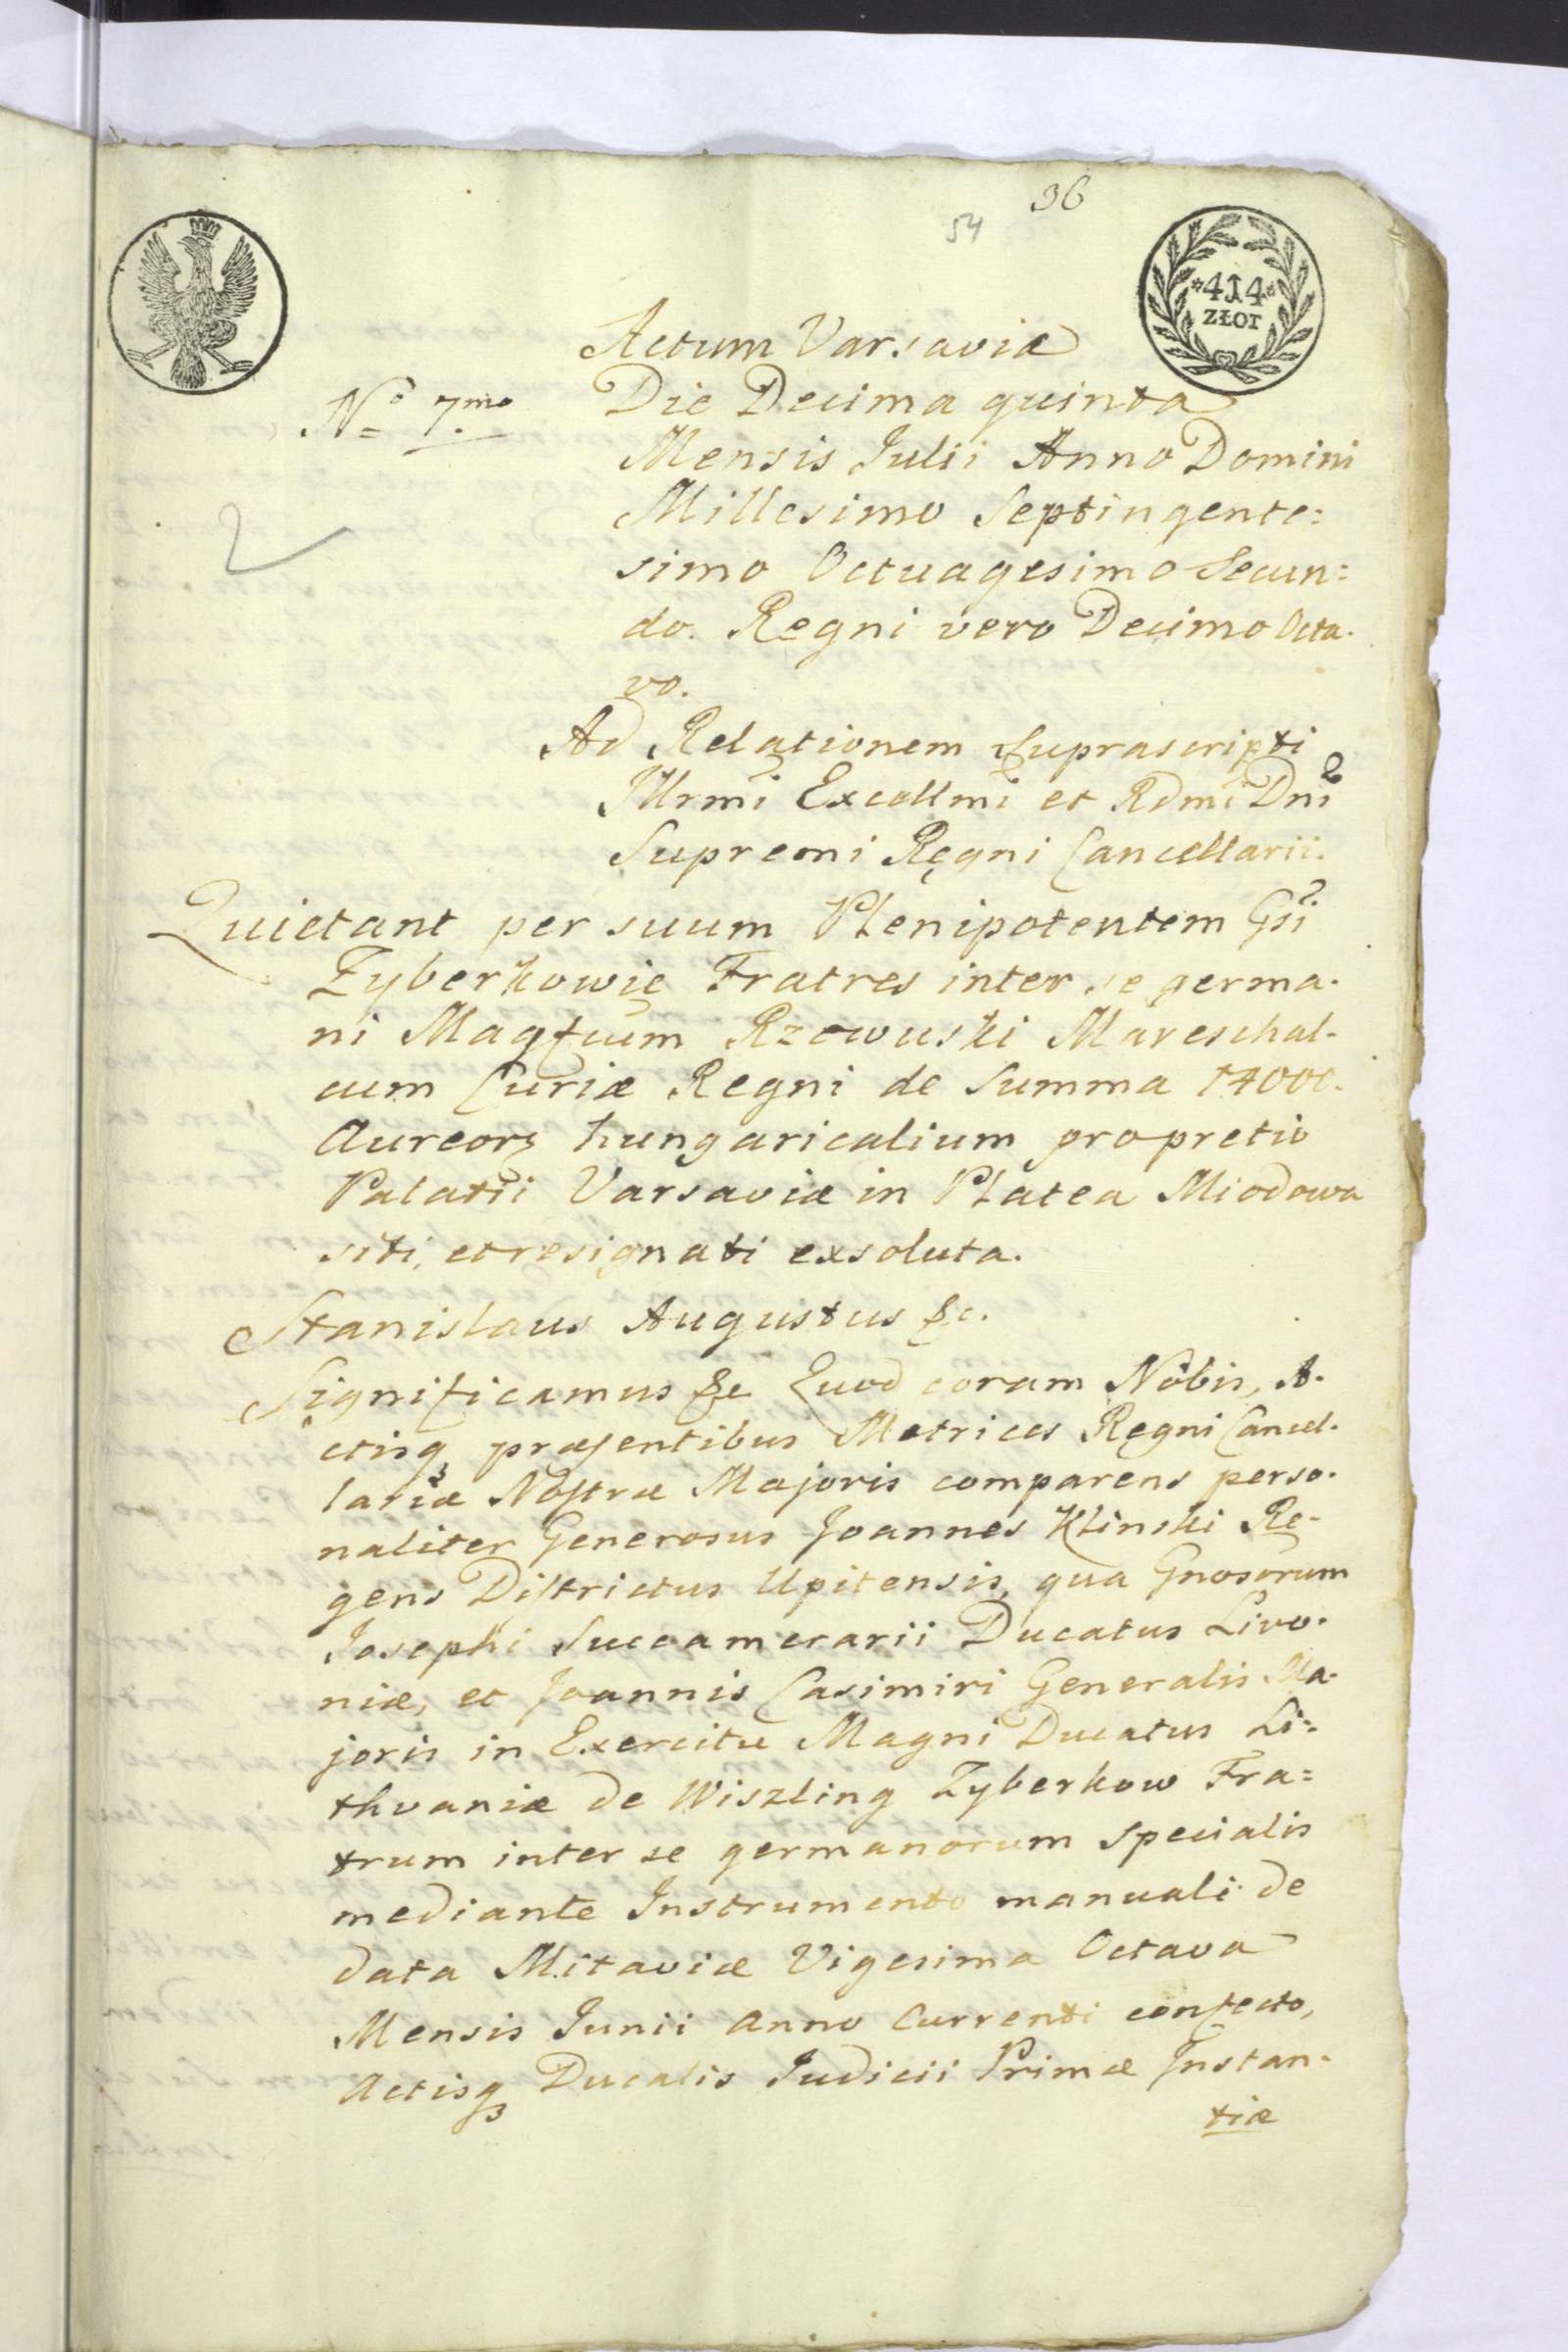 36
54
*4 1 4*
ZŁOT
Actum Varsaviæ
Nº 7mo
Die Decima quinta
Mensis Julii Anno Domini
Millesimo Septingente:
simo Octuagesimo Secun:
do. Regni vero Decimo Octa.
vo.
Ad Relationem Suprascripti
Illrmi Excellmi et Rdmi Dni
Supremi Regni Cancellarii.
Quietant per suum Plenipotentem Gsi
Zyberkowie Fratres inter se germa.
ni Magfcum Rzewuski Mareschal-
cum Curiæ Regni de Summa 14000.
Aureorq hungaricalium pro pretio
Palatii Varsaviæ in Platea Miodowa
siti, et resignati exsoluta.
Stanislaus Augustus &c.
Significamus &c Quod coram Nobis, A.
ctisq præsentibus Metrices Regni Cancel.
lariæ Nostræ Majoris comparens perso.
naliter Generosus Joannes Klinski Re-
gens Districtus Upitensis, qua Gnosorum
Josephi Succamerarii Ducatus Livo.
niæ, et Joannis Casimiri Generalis Ma.
joris in Exercitu Magni Ducatus Li:
thvaniæ de Wiszling Zyberkow Fra=
trum inter se germanorum specialis
mediante Instrumento manuali de
data Mitaviæ Vigesima Octava
Mensis Junii Anno Currenti confecto,
Actisq Ducalis Judicii Primæ Instan-
tiæ